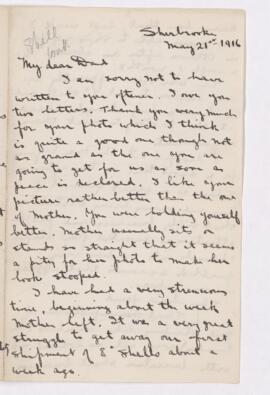 Shell
Sherbrooke
May 21st 1916
My dear Dad
I am sorry not to have
written to you oftener. I owe you
two letters. Thank you very much
for your photo which I think
is quite a good one though not
as grand as the one you are
going to get for us as soon as
peace is declared. I like your
picture rather better than the one
of Mother. You were holding yourself
better. Mother usually sits or
stands so straight that it seems
a pity for her photo to make her
look stooped.
I have had a very strenuous
time, beginning about the week
Mother left. It was a very great
struggle to get away our first
shipment of 8" Shells about a
week ago.